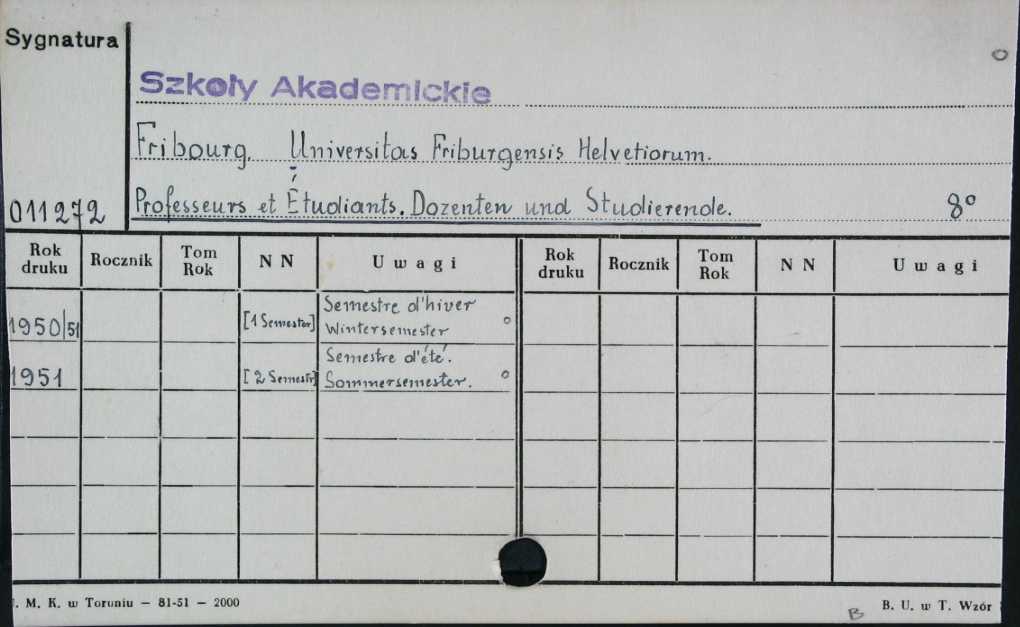 Sygnatura
Szkoły Akademickie
Fribourg. Universitas Friburgensis Helvetiorum.
011272
Professeurs et Étudiants. Dozenten und Studierende. 8°
Rok druku Rocznik Tom Rok N N Uwagi Rok druku Rocznik Tom Rok N N Uwagi
1950/51 [1 Semester] Semestre d'hiver
Wintersemester o
1951 [2 Semestr] Semestre d'été.
Sommersemester. o
. M. K. w Toruniu — 81-51 — 2000
B
B. U. w T. Wzór